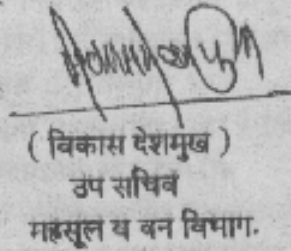 ( विकास देशमुख )
उप सचिव
महसूल व वन विभाग.